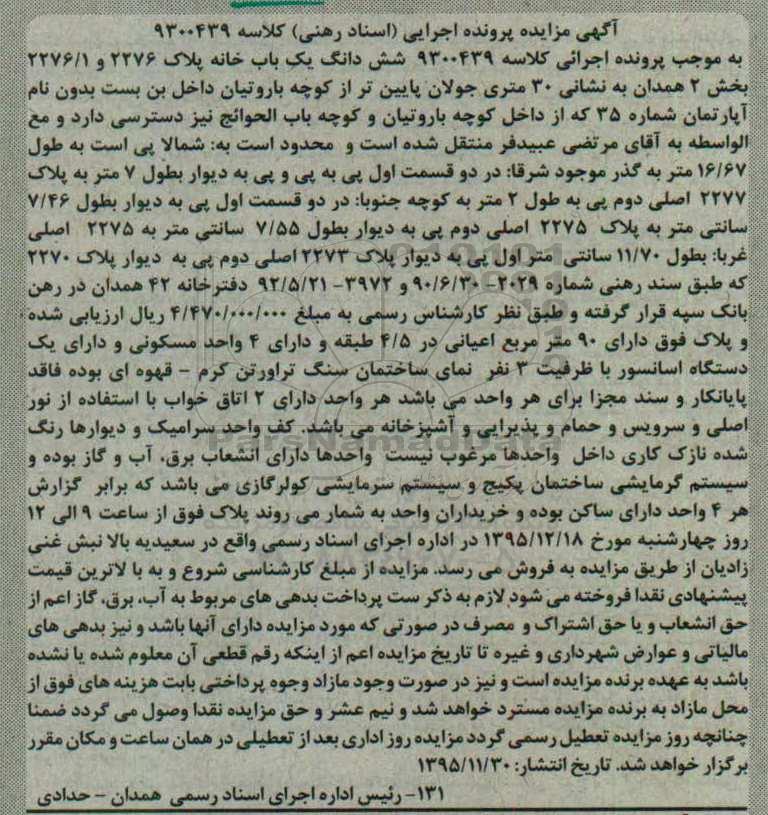 آگهی مزایده پرونده اجرایی (اسناد رهنی) کلاسه ۹۳۰۰۴۳۹
به موجب پرونده اجرائی کلاسه ۹۳۰۰۴۳۹ شش دانگ یک باب خانه پلاک ۲۲۷۶ و ۲۲۷۶/۱
بخش ۲ همدان به نشانی ۳۰ متری جولان پایین تر از کوچه باروتیان داخل بن بست بدون نام
آپارتمان شماره ۳۵ که از داخل کوچه باروتیان و کوچه باب الحوائج نیز دسترسی دارد و مع
الواسطه به آقای مرتضی عبیدفر منتقل شده است و محدود است به: شمالا پی است به طول
۱۶/۶۷ متر به گذر موجود شرقا: در دو قسمت اول پی به پی و پی به دیوار بطول ۷ متر به پلاک
۲۲۷۷ اصلی دوم پی به طول ۲ متر به کوچه جنوبا: در دو قسمت اول پی به دیوار بطول ۷/۴۶
سانتی متر به پلاک ۲۲۷۵ اصلی دوم پی به دیوار بطول ۷/۵۵ سانتی متر به ۲۲۷۵ اصلی
غربا: بطول ۱۱/۷۰ سانتی متر اول پی به دیوار پلاک ۲۲۷۳ اصلی دوم پی به دیوار پلاک ۲۲۷۰
که طبق سند رهنی شماره ۲۰۲۹-۹۰/۶/۳۰ و ۳۹۷۲- ۹۲/۵/۲۱ دفترخانه ۴۲ همدان در رهن
بانک سپه قرار گرفته و طبق نظر کارشناس رسمی به مبلغ ۴/۴۷۰/۰۰۰/۰۰۰ ریال ارزیابی شده
و پلاک فوق دارای ۹۰ متر مربع اعیانی در ۴/۵ طبقه و دارای ۴ واحد مسکونی و دارای یک
دستگاه اسانسور با ظرفیت ۳ نفر نمای ساختمان سنگ تراورتن کرم - قهوه ای بوده فاقد
پایانکار و سند مجزا برای هر واحد می باشد هر واحد دارای ۲ اتاق خواب با استفاده از نور
اصلی و سرویس و حمام و پذیرایی و آشپزخانه می باشد. کف واحد سرامیک و دیوارها رنگ
شده نازک کاری داخل واحدها مرغوب نیست واحدها دارای انشعاب برق، آب و گاز بوده و
سیستم گرمایشی ساختمان پکیج و سیستم سرمایشی کولرگازی می باشد که برابر گزارش
هر ۴ واحد دارای ساکن بوده و خریداران واحد به شمار می روند پلاک فوق از ساعت ۹ الی ۱۲
روز چهارشنبه مورخ ۱۳۹۵/۱۲/۱۸ در اداره اجرای اسناد رسمی واقع در سعیدیه بالا نبش غنی
زادیان از طریق مزایده به فروش می رسد. مزایده از مبلغ کارشناسی شروع و به با لاترین قیمت
پیشنهادی نقدا فروخته می شود لازم به ذکر ست پرداخت بدهی های مربوط به آب، برق، گاز اعم از
حق انشعاب و یا حق اشتراک و مصرف در صورتی که مورد مزایده دارای آنها باشد و نیز بدهی های
مالیاتی و عوارض شهرداری و غیره تا تاریخ مزایده اعم از اینکه رقم قطعی آن معلوم شده یا نشده
باشد به عهده برنده مزایده است و نیز در صورت وجود مازاد وجوه پرداختی بابت هزینه های فوق از
محل مازاد به برنده مزایده مسترد خواهد شد و نیم عشر و حق مزایده نقدا وصول می گردد ضمنا
چنانچه روز مزایده تعطیل رسمی گردد مزایده روز اداری بعد از تعطیلی در همان ساعت و مکان مقرر
برگزار خواهد شد. تاریخ انتشار: ۱۳۹۵/۱۱/۳۰
۱۳۱- رئیس اداره اجرای اسناد رسمی همدان - حدادی
ParsNamadData